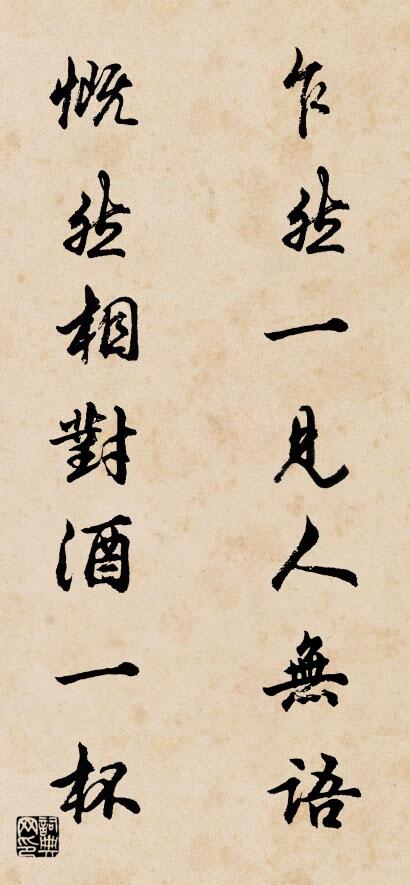 乍然一見人無語
慨然相對酒一杯
詞典網印